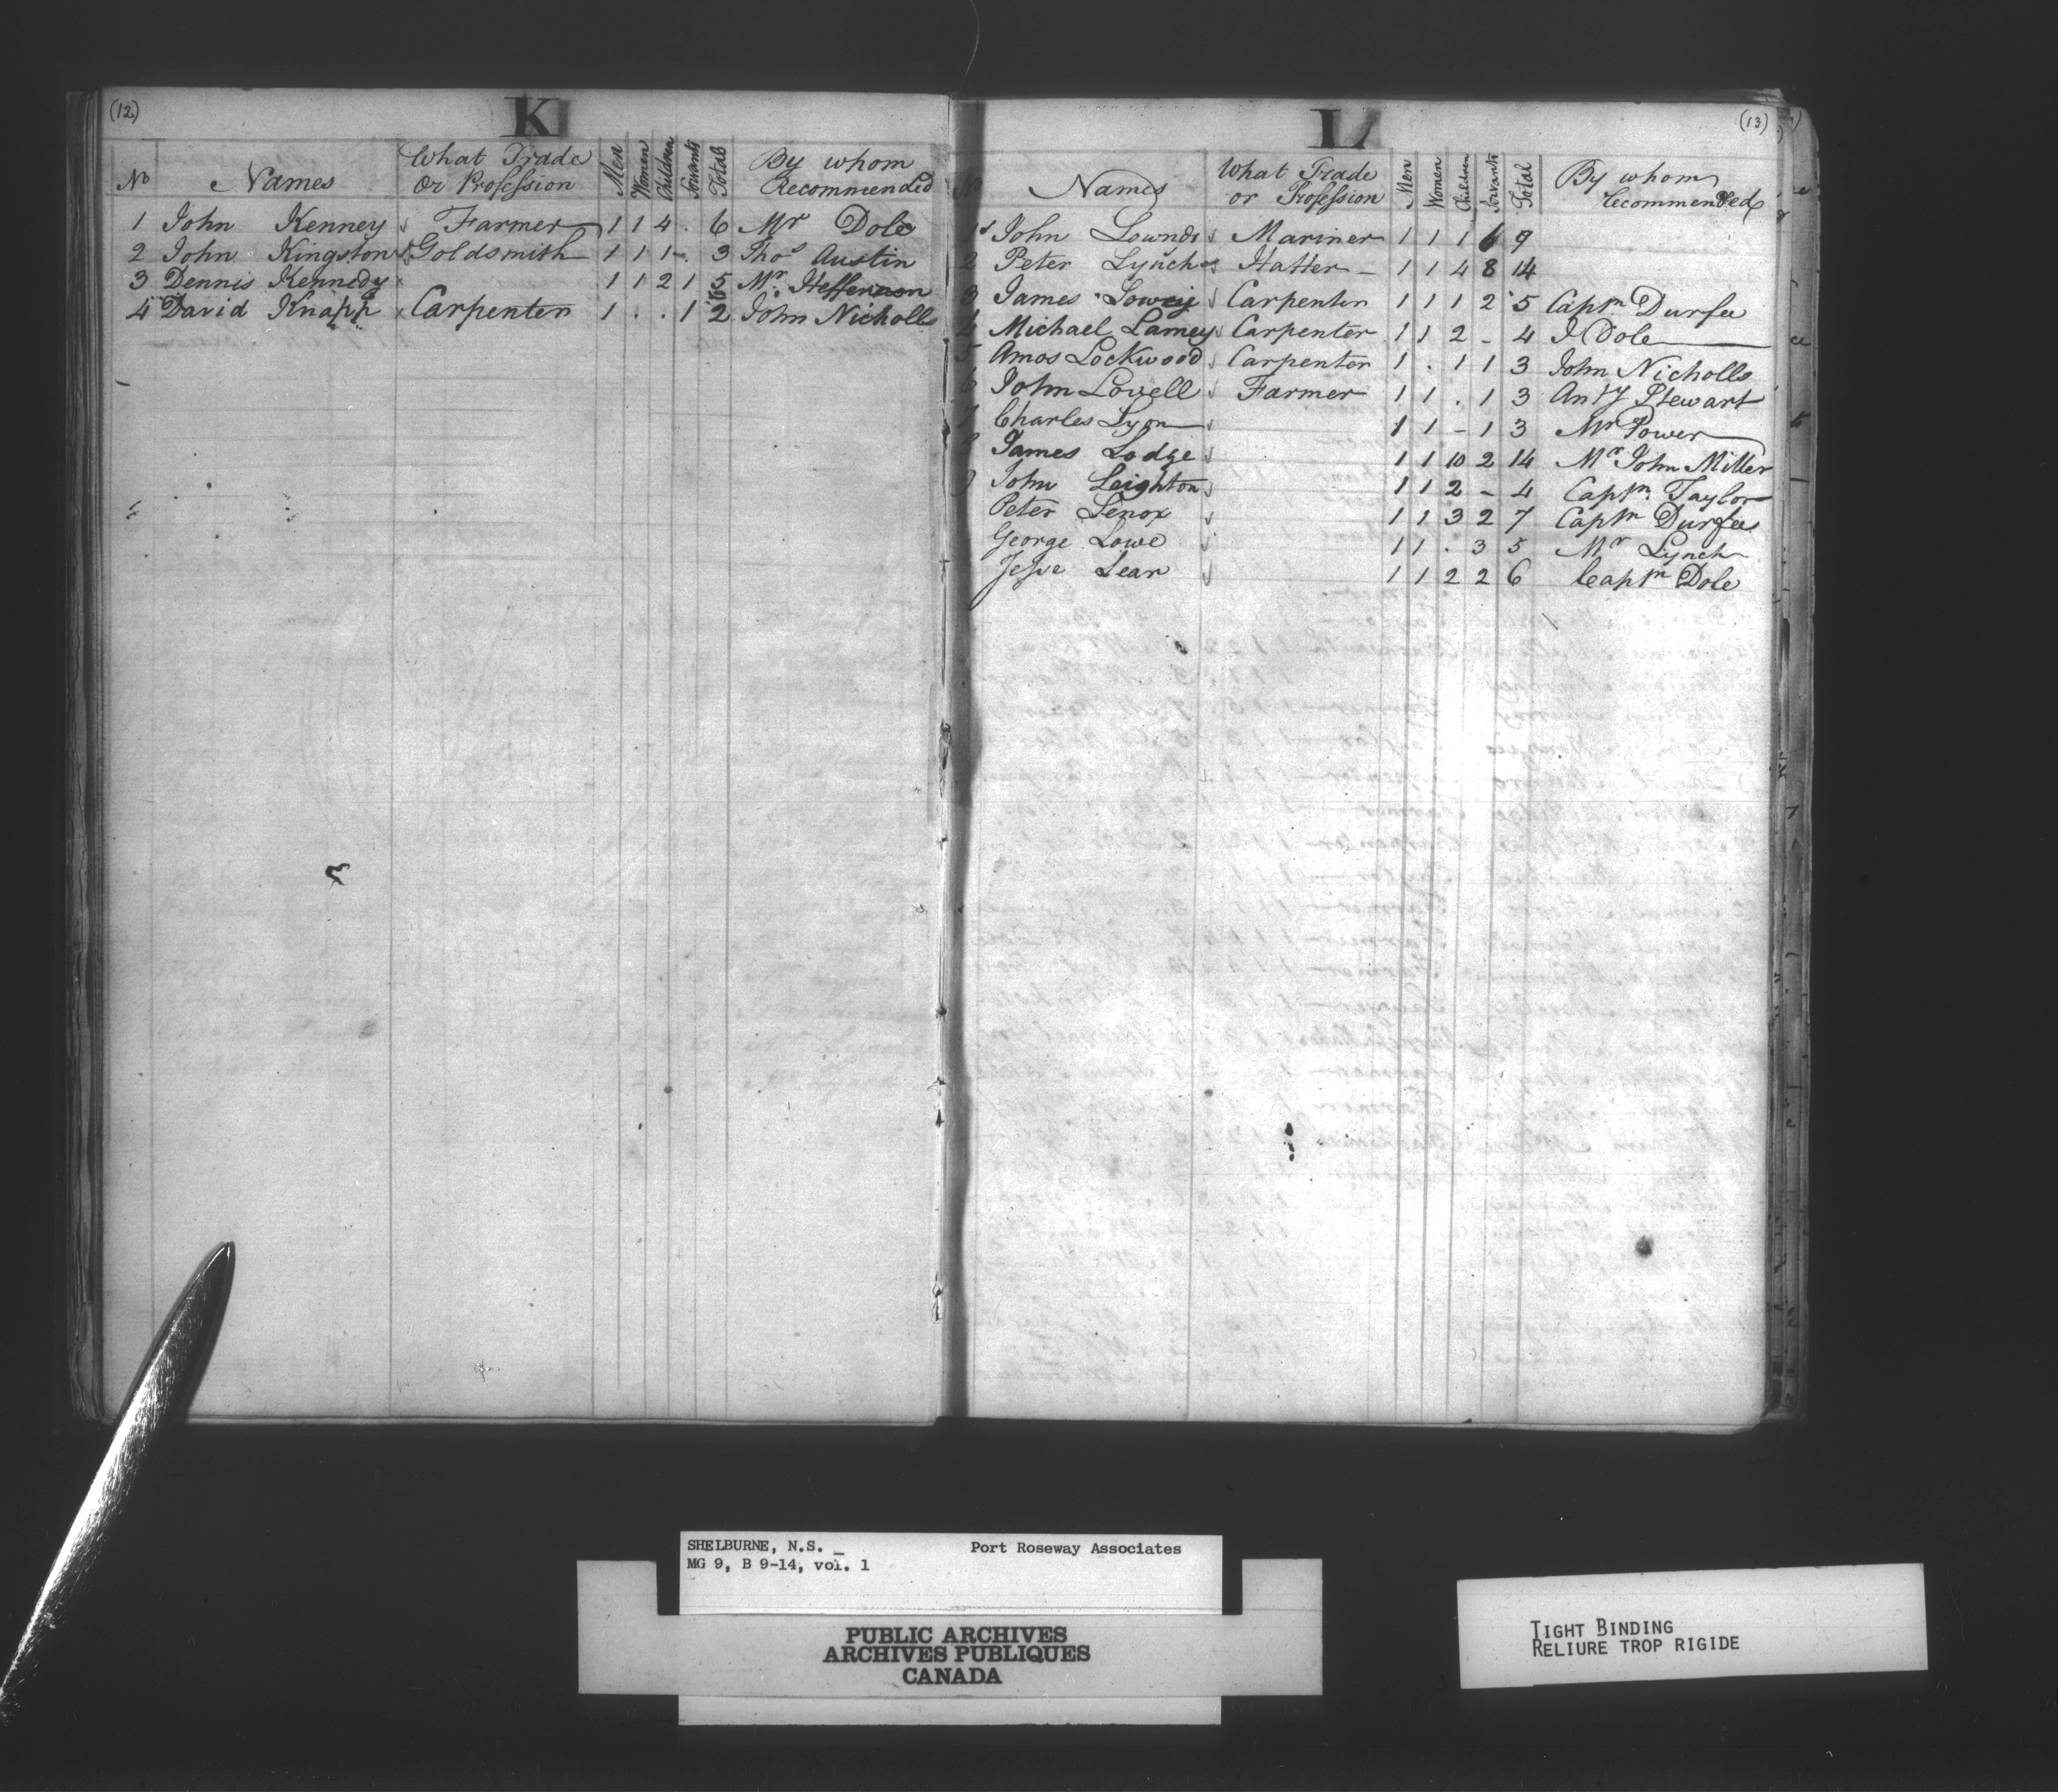 (12)
K
No Names What Trade Or Profession Men Women Children Servants Total By whom Recommended
1 John Kenney Farmer 1 1 4 . 6 Mr Dole
2 John Kingston Goldsmith 1 1 1 - . 3 Thos Austin
3 Dennis Kennedy 1 1 2 1 5 Mr. Heffernon
4 David Knapp Carpenter 1 . . 1 2 John Nicholls
(13)
L
No Names What Trade or Profession Men Women Children Servants Total By whom Recommended
1 John Lownds Mariner 1 1 1 6 9
2 Peter Lynch Hatter - 1 1 4 8 14
3 James Lowrey Carpenter 1 1 1 2 5 Captn Durfee
4 Michael Lamey Carpenter 1 1 2 - 4 J Dole
5 Amos Lockwood Carpenter 1 . 1 1 3 John Nicholls
6 John Lovell Farmer 1 1 . 1 3 Anty Stewart
7 Charles Lyon 1 1 - 1 3 Mr Power
8 James Lodge 1 1 10 2 14 Mr John Miller
9 John Leighton 1 1 2 - 4 Captn. Taylor
Peter Lenox 1 1 3 2 7 Captn Durfee
George Lowe 1 1 . 3 5 Mr Lynch
Jesse Lear 1 1 2 2 6 Captn Dole
SHELBURNE, N.S. _ Port Roseway Associates
MG 9, B 9-14, vol. 1
PUBLIC ARCHIVES
ARCHIVES PUBLIQUES
CANADA
TIGHT BINDING
RELIURE TROP RIGIDE